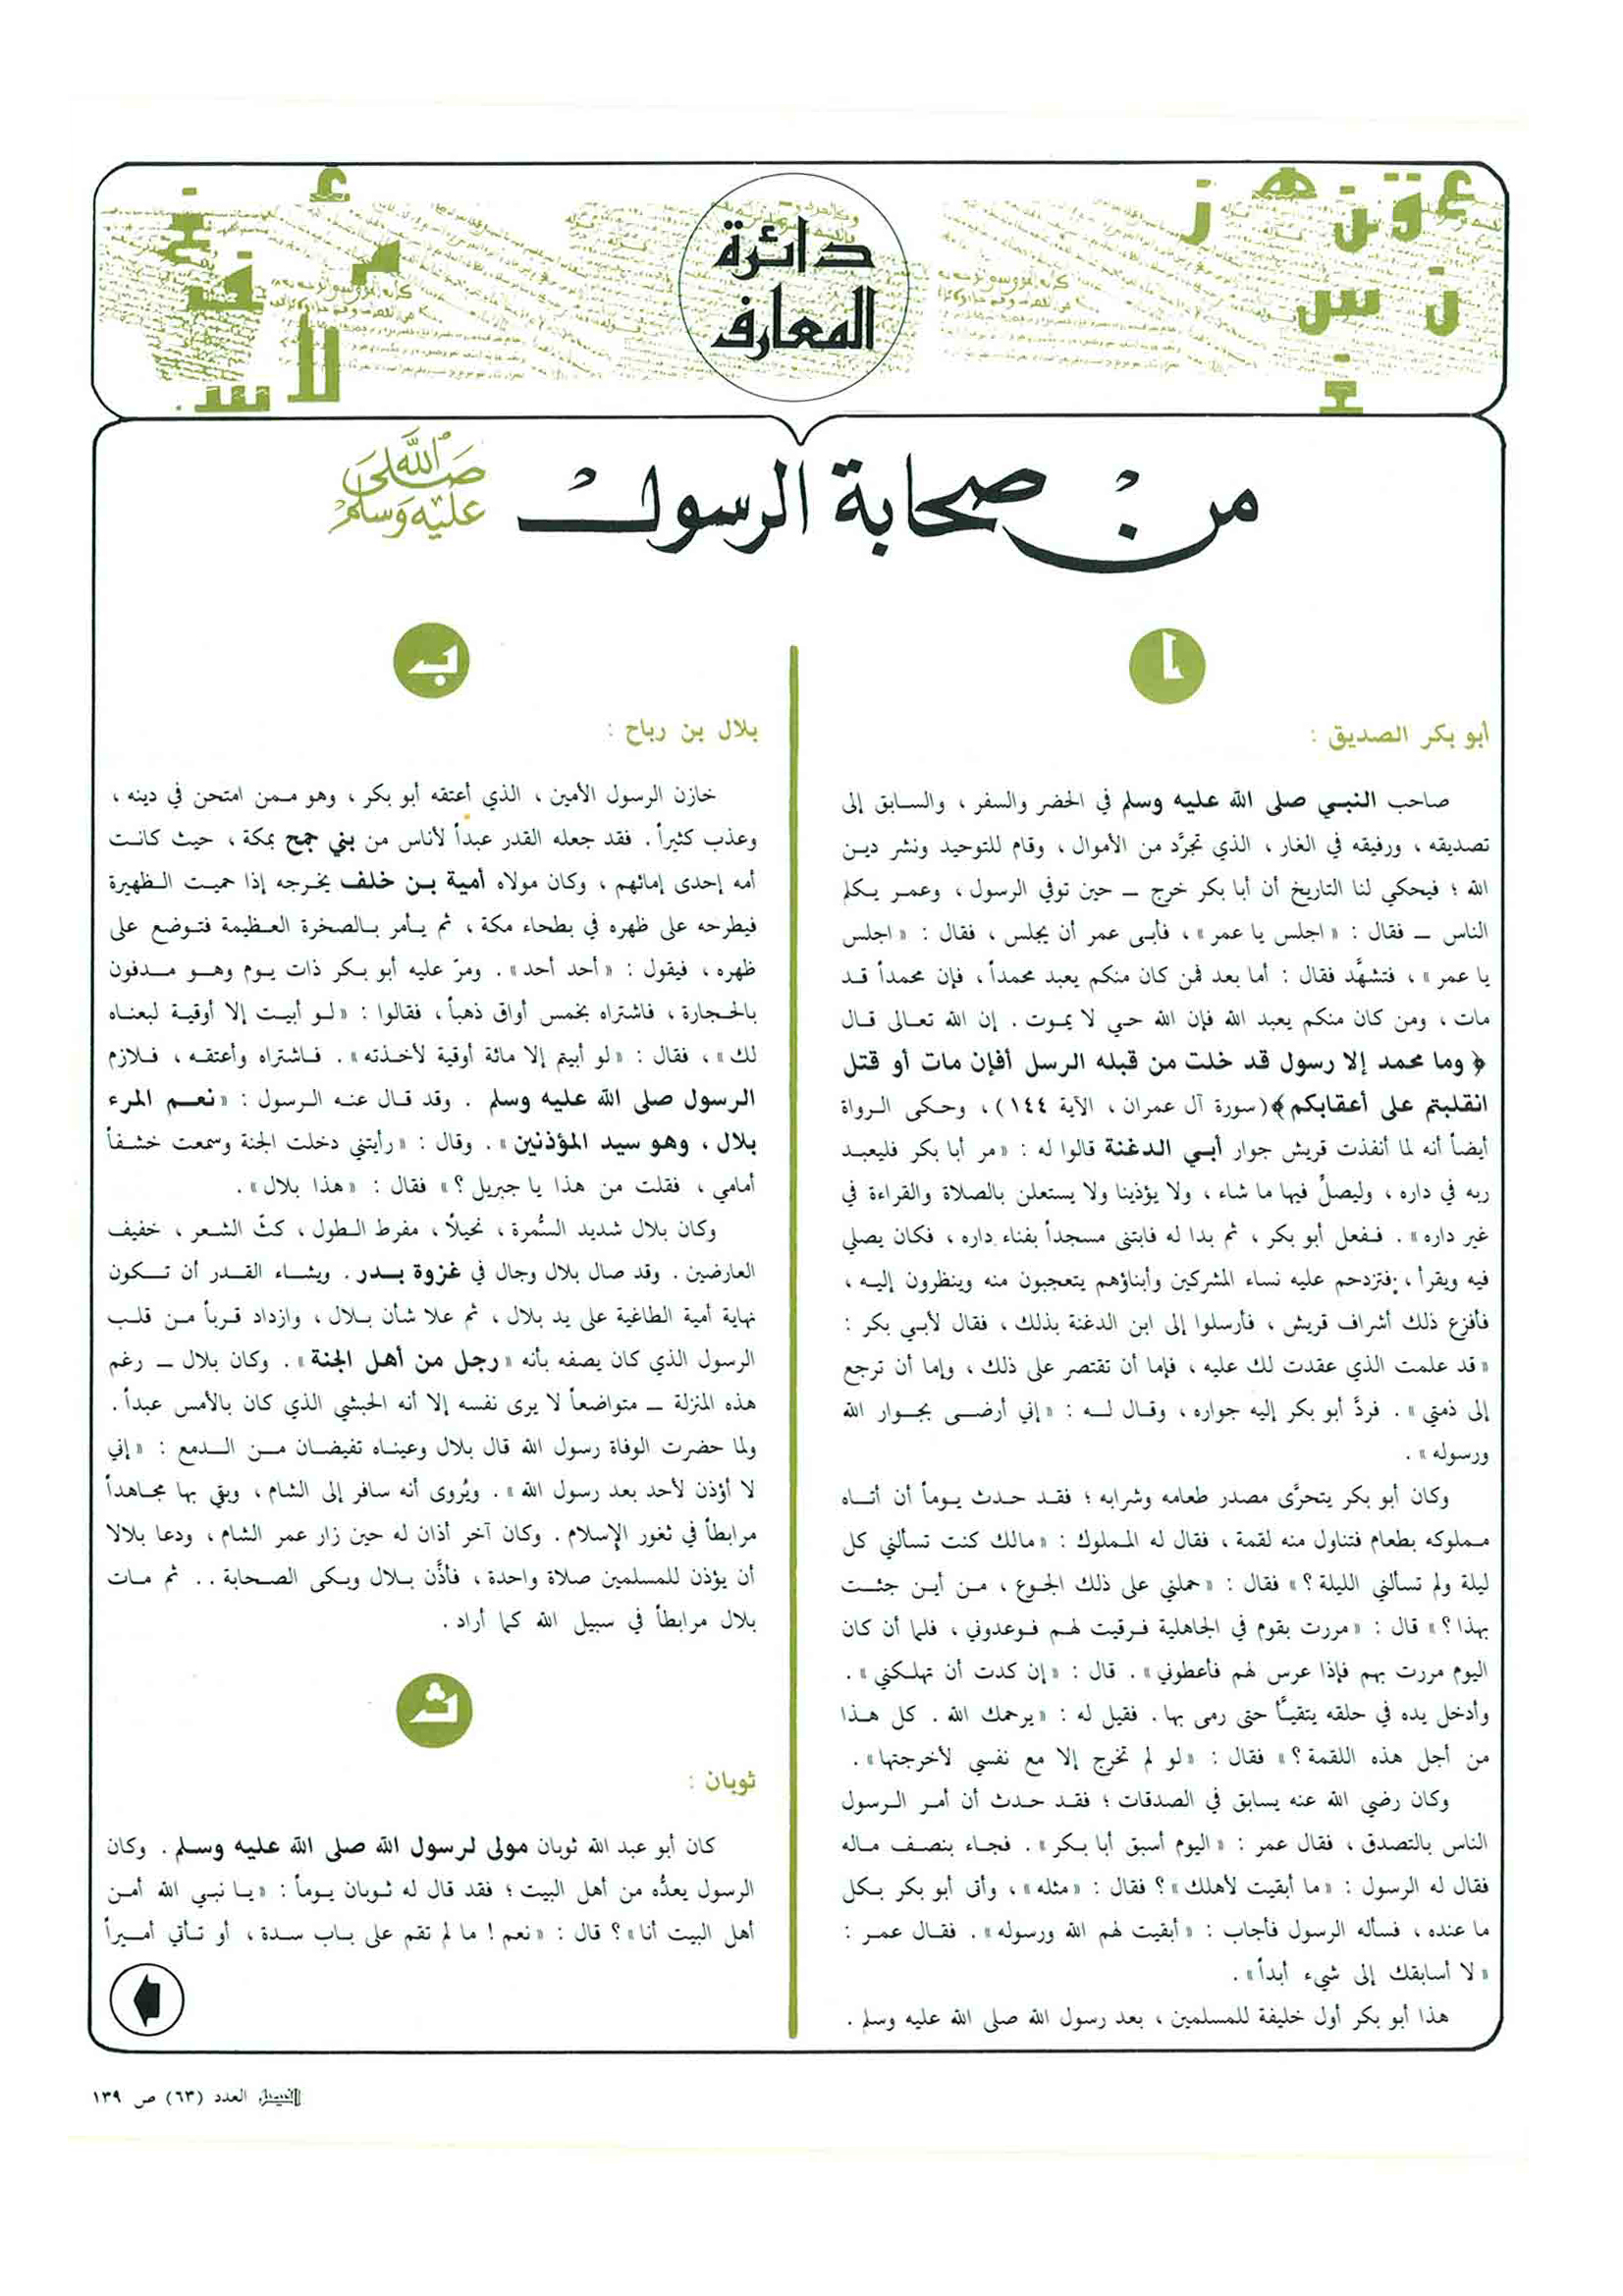 دائرة
المعارف
من صحابة الرسول
صلى الله
عليه وسلم
ا
أبو بكر الصديق :
صاحب النبي صلى الله عليه وسلم في الحضر والسفر ، والسابق إلى
تصديقه ، ورفيقه في الغار ، الذي تجرَّد من الأموال ، وقام للتوحيد ونشر دين
الله ؛ فيحكي لنا التاريخ أن أبا بكر خرج ــ حين توفي الرسول ، وعمر يكلم
الناس ــ فقال : «اجلس يا عمر» ، فأبى عمر أن يجلس ، فقال : «اجلس
يا عمر» ، فتشهَّد فقال : أما بعد فمن كان منكم يعبد محمداً ، فإن محمداً قد
مات ، ومن كان منكم يعبد الله فإن الله حي لا يموت . إن الله تعالى قال
﴿ وما محمد إلا رسول قد خلت من قبله الرسل أفإن مات أو قتل
انقلبتم على أعقابكم ﴾ (سورة آل عمران ، الآية ١٤٤) ، وحكى الرواة
أيضاً أنه لما أنفذت قريش جوار أبي الدغنة قالوا له : «مر أبا بكر فليعبد
ربه في داره ، وليصلِّ فيها ما شاء ، ولا يؤذينا ولا يستعلن بالصلاة والقراءة في
غير داره» . ففعل أبو بكر ، ثم بدا له فابتنى مسجداً بفناء داره ، فكان يصلي
فيه ويقرأ ، فتزدحم عليه نساء المشركين وأبناؤهم يتعجبون منه وينظرون إليه ،
فأفزع ذلك أشراف قريش ، فأرسلوا إلى ابن الدغنة بذلك ، فقال لأبي بكر :
«قد علمت الذي عقدت لك عليه ، فإما أن تقتصر على ذلك ، وإما أن ترجع
إلى ذمتي» . فردَّ أبو بكر إليه جواره ، وقال له : «إني أرضى بجوار الله
ورسوله» .
وكان أبو بكر يتحرَّى مصدر طعامه وشرابه ؛ فقد حدث يوماً أن أتاه
مملوكه بطعام فتناول منه لقمة ، فقال له المملوك : «مالك كنت تسألني كل
ليلة ولم تسألني الليلة ؟» فقال : «حملني على ذلك الجوع ، من أين جئت
بهذا ؟» قال : «مررت بقوم في الجاهلية فرقيت لهم فوعدوني ، فلما أن كان
اليوم مررت بهم فإذا عرس لهم فأعطوني» . قال : «إن كدت أن تهلكني» .
وأدخل يده في حلقه يتقيأ حتى رمى بها . فقيل له : «يرحمك الله . كل هذا
من أجل هذه اللقمة ؟» فقال : «لو لم تخرج إلا مع نفسي لأخرجتها» .
وكان رضي الله عنه يسابق في الصدقات ؛ فقد حدث أن أمر الرسول
الناس بالتصدق ، فقال عمر : «اليوم أسبق أبا بكر» . فجاء بنصف ماله
فقال له الرسول : «ما أبقيت لأهلك» ؟ فقال : «مثله» ، وأتى أبو بكر بكل
ما عنده ، فسأله الرسول فأجاب : «أبقيت لهم الله ورسوله» . فقال عمر :
«لا أسابقك إلى شيء أبداً» .
هذا أبو بكر أول خليفة للمسلمين ، بعد رسول الله صلى الله عليه وسلم .
بـ
بلال بن رباح :
خازن الرسول الأمين ، الذي أعتقه أبو بكر ، وهو ممن امتحن في دينه ،
وعذب كثيراً . فقد جعله القدر عبداً لأناس من بني جمح بمكة ، حيث كانت
أمه إحدى إمائهم ، وكان مولاه أمية بن خلف يخرجه إذا حميت الظهيرة
فيطرحه على ظهره في بطحاء مكة ، ثم يأمر بالصخرة العظيمة فتوضع على
ظهره ، فيقول : «أحد أحد» . ومرّ عليه أبو بكر ذات يوم وهو مدفون
بالحجارة ، فاشتراه بخمس أواق ذهباً ، فقالوا : «لو أبيت إلا أوقية لبعناه
لك» ، فقال : «لو أبيتم إلا مائة أوقية لأخذته» . فاشتراه وأعتقه ، فلازم
الرسول صلى الله عليه وسلم . وقد قال عنه الرسول : «نعم المرء
بلال ، وهو سيد المؤذنين» . وقال : «رأيتني دخلت الجنة وسمعت خشفاً
أمامي ، فقلت من هذا يا جبريل ؟» فقال : «هذا بلال» .
وكان بلال شديد السُّمرة ، نحيلاً ، مفرط الطول ، كثّ الشعر ، خفيف
العارضين . وقد صال بلال وجال في غزوة بدر . ويشاء القدر أن تكون
نهاية أمية الطاغية على يد بلال ، ثم علا شأن بلال ، وازداد قرباً من قلب
الرسول الذي كان يصفه بأنه «رجل من أهل الجنة» . وكان بلال ــ رغم
هذه المنزلة ــ متواضعاً لا يرى نفسه إلا أنه الحبشي الذي كان بالأمس عبداً .
ولما حضرت الوفاة رسول الله قال بلال وعيناه تفيضان من الدمع : «إني
لا أؤذن لأحد بعد رسول الله» . ويُروى أنه سافر إلى الشام ، وبقي بها مجاهداً
مرابطاً في ثغور الإسلام . وكان آخر أذان له حين زار عمر الشام ، ودعا بلالا
أن يؤذن للمسلمين صلاة واحدة ، فأذَّن بلال وبكى الصحابة .. ثم مات
بلال مرابطاً في سبيل الله كما أراد .
ثـ
ثوبان :
كان أبو عبد الله ثوبان مولى لرسول الله صلى الله عليه وسلم . وكان
الرسول يعدُّه من أهل البيت ؛ فقد قال له ثوبان يوماً : «يا نبي الله أمن
أهل البيت أنا» ؟ قال : «نعم ! ما لم تقم على باب سدة ، أو تأتي أميراً
الفيصل العدد (٦٣) ص ١٣٩